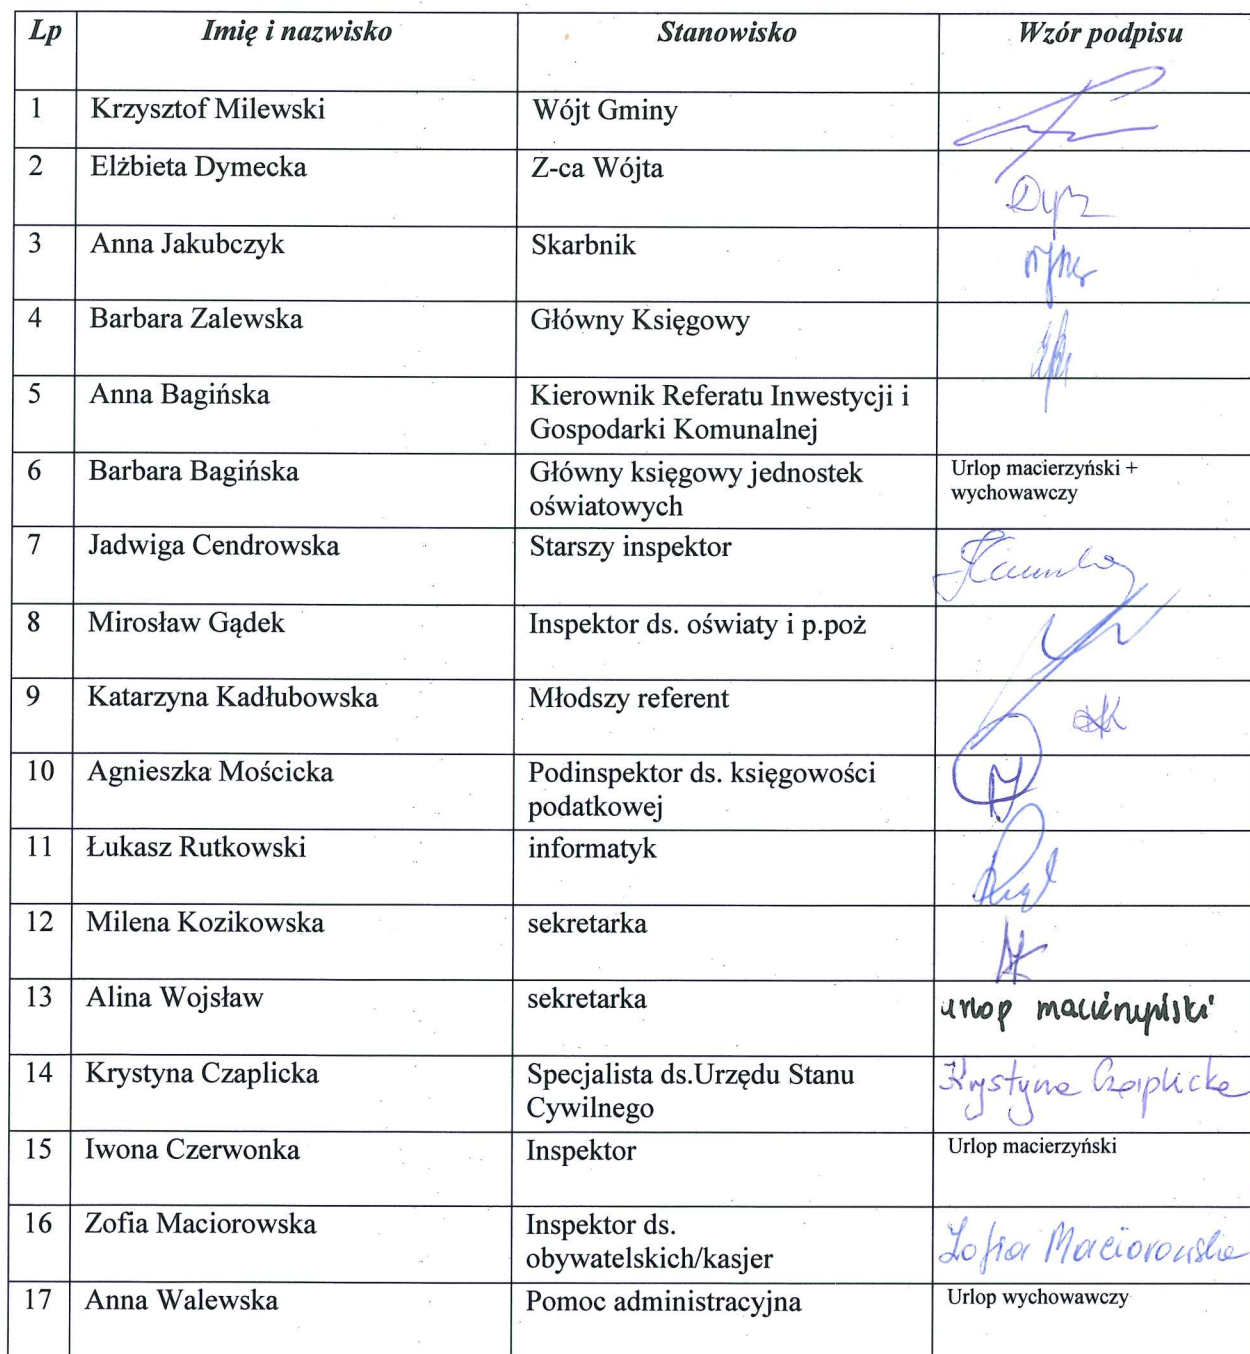 Lp Imię i nazwisko Stanowisko Wzór podpisu
1 Krzysztof Milewski Wójt Gminy
2 Elżbieta Dymecka Z-ca Wójta
3 Anna Jakubczyk Skarbnik
4 Barbara Zalewska Główny Księgowy
5 Anna Bagińska Kierownik Referatu Inwestycji i
Gospodarki Komunalnej
6 Barbara Bagińska Główny księgowy jednostek Urlop macierzyński +
oświatowych wychowawczy
7 Jadwiga Cendrowska Starszy inspektor
8 Mirosław Gądek Inspektor ds. oświaty i p.poż
9 Katarzyna Kadłubowska Młodszy referent
10 Agnieszka Mościcka Podinspektor ds. księgowości
podatkowej
11 Łukasz Rutkowski informatyk
12 Milena Kozikowska sekretarka
13 Alina Wojsław sekretarka urlop macierzyński
14 Krystyna Czaplicka Specjalista ds.Urzędu Stanu Krystyna Czaplicka
Cywilnego
15 Iwona Czerwonka Inspektor Urlop macierzyński
16 Zofia Maciorowska Inspektor ds. Zofia Maciorowska
obywatelskich/kasjer
17 Anna Walewska Pomoc administracyjna Urlop wychowawczy